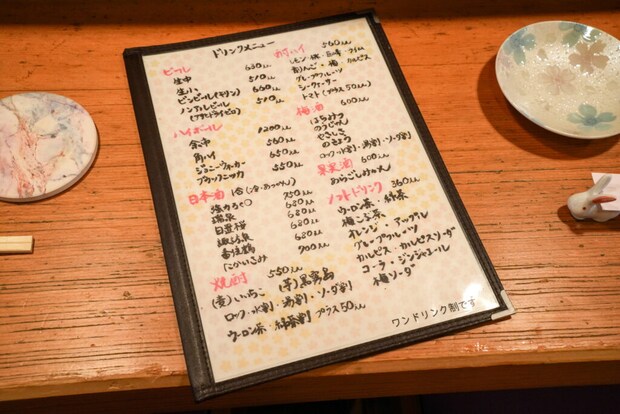 ドリンクメニュー
ビール
生中 630円
生小 510円
ビンビール(キリン) 660円
ノンアルビール 510円
(アサヒドライゼロ)
ハイボール
余市 1200円
角ハイ 560円
ジョニーウォーカー 650円
ブラックニッカ 550円
日本酒 1合(冷・あつかん)
750円
瑞泉 680円
日置桜 680円
諏訪泉 680円
香住鶴 680円
たかいさみ 900円
焼酎 550円
(麦)いいちこ (芋)黒霧島
ロック・水割・湯割・ソーダ割
ウーロン茶・緑茶割 プラス50円
酎ハイ 560円
レモン・桃・巨峰・ライム
青りんご・梅・カルピス
グレープフルーツ
シークヮーサー
トマト(プラス50円)
梅酒 600円
はちみつ
のうじゅん
ロック・水割・湯割・ソーダ割
果実酒 600円
あらごしみかん
ソフトドリンク 360円
ウーロン茶・緑茶
梅こぶ茶
オレンジ・アップル
グレープフルーツ
カルピス・カルピスソーダ
コーラ・ジンジャエール
梅ソーダ
ワンドリンク制です